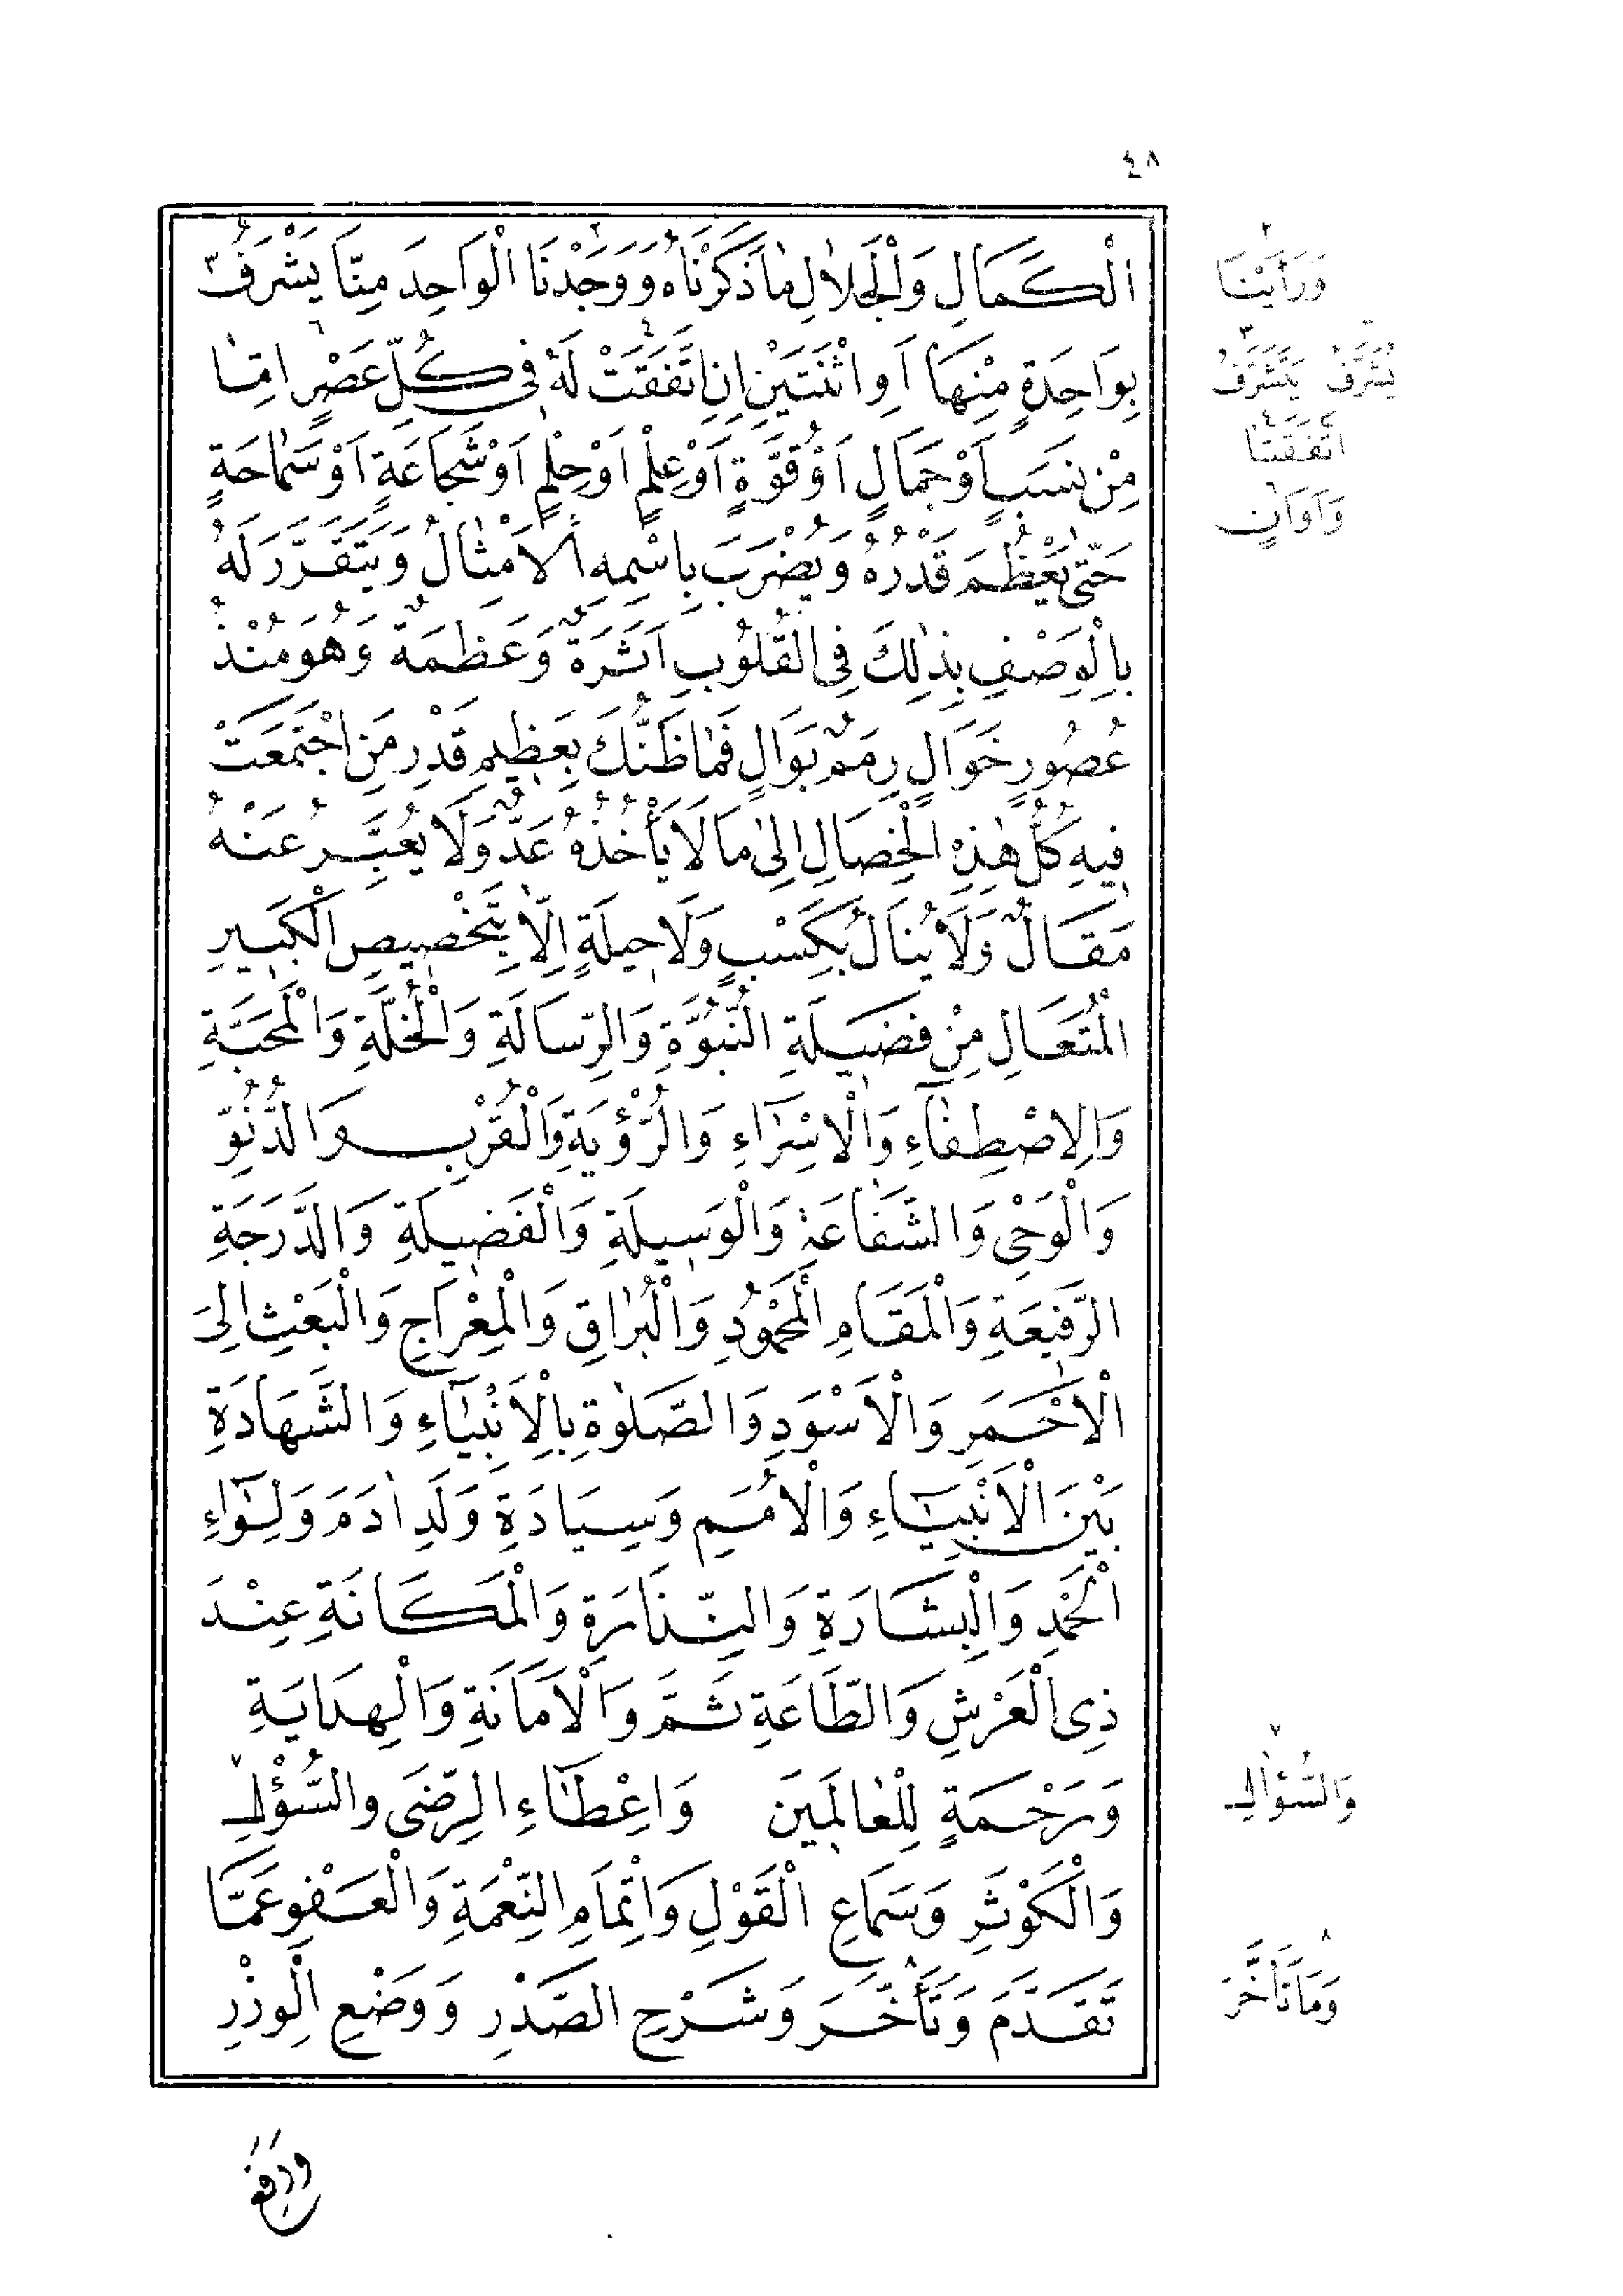 ٤٨
الْكَمَالِ وَالْجَلَالِ مَا ذَكَرْنَاهُ وَوَجَدْنَا الْوَاحِدَ مِنَّا يَشْرُفُ
بِوَاحِدَةٍ مِنْهَا أَوِ اثْنَتَيْنِ إِنِ اتَّفَقَتْ لَهُ فِي كُلِّ عَصْرٍ إِمَّا
مِنْ نَسَبٍ أَوْ جَمَالٍ أَوْ قُوَّةٍ أَوْ عِلْمٍ أَوْ حِلْمٍ أَوْ شَجَاعَةٍ أَوْ سَمَاحَةٍ
حَتَّى يَعْظُمَ قَدْرُهُ وَيُضْرَبَ بِاسْمِهِ الْأَمْثَالُ وَيَتَقَرَّرَ لَهُ
بِالْوَصْفِ بِذٰلِكَ فِي الْقُلُوبِ أَثَرَةٌ وَعَظَمَةٌ وَهُوَ مُنْذُ
عُصُورٍ خَوَالٍ رِمَمٌ بَوَالٍ فَمَا ظَنُّكَ بِعَظِيمِ قَدْرِ مَنِ اجْتَمَعَتْ
فِيهِ كُلُّ هٰذِهِ الْخِصَالِ إِلَى مَا لَا يَأْخُذُهُ عَدٌّ وَلَا يُعَبِّرُ عَنْهُ
مَقَالٌ وَلَا يُنَالُ بِكَسْبٍ وَلَا حِيلَةٍ إِلَّا بِتَخْصِيصِ الْكَبِيرِ
الْمُتَعَالِ مِنْ فَضِيلَةِ النُّبُوَّةِ وَالرِّسَالَةِ وَالْخُلَّةِ وَالْمَحَبَّةِ
وَالِاصْطِفَاءِ وَالْإِسْرَاءِ وَالرُّؤْيَةِ وَالْقُرْبِ وَالدُّنُوِّ
وَالْوَحْيِ وَالشَّفَاعَةِ وَالْوَسِيلَةِ وَالْفَضِيلَةِ وَالدَّرَجَةِ
الرَّفِيعَةِ وَالْمَقَامِ الْمَحْمُودِ وَالْبُرَاقِ وَالْمِعْرَاجِ وَالْبَعْثِ إِلَى
الْأَحْمَرِ وَالْأَسْوَدِ وَالصَّلٰوةِ بِالْأَنْبِيَاءِ وَالشَّهَادَةِ
بَيْنَ الْأَنْبِيَاءِ وَالْأُمَمِ وَسِيَادَةِ وَلَدِ اٰدَمَ وَلِوَاءِ
الْحَمْدِ وَالْبِشَارَةِ وَالنِّذَارَةِ وَالْمَكَانَةِ عِنْدَ
ذِي الْعَرْشِ وَالطَّاعَةِ ثَمَّ وَالْأَمَانَةِ وَالْهِدَايَةِ
وَرَحْمَةٍ لِلْعَالَمِينَ وَإِعْطَاءِ الرِّضَى وَالسُّؤْلِ
وَالْكَوْثَرِ وَسَمَاعِ الْقَوْلِ وَإِتْمَامِ النِّعْمَةِ وَالْعَفْوِ عَمَّا
تَقَدَّمَ وَتَأَخَّرَ وَشَرْحِ الصَّدْرِ وَوَضْعِ الْوِزْرِ
وَرَأَيْنَا
يُشَرَّفُ يَتَشَرَّفُ
اتَّفَقَتَا
وَأَوَانٍ
وَالسُّؤَالِ
وَمَا تَأَخَّرَ
ورفع